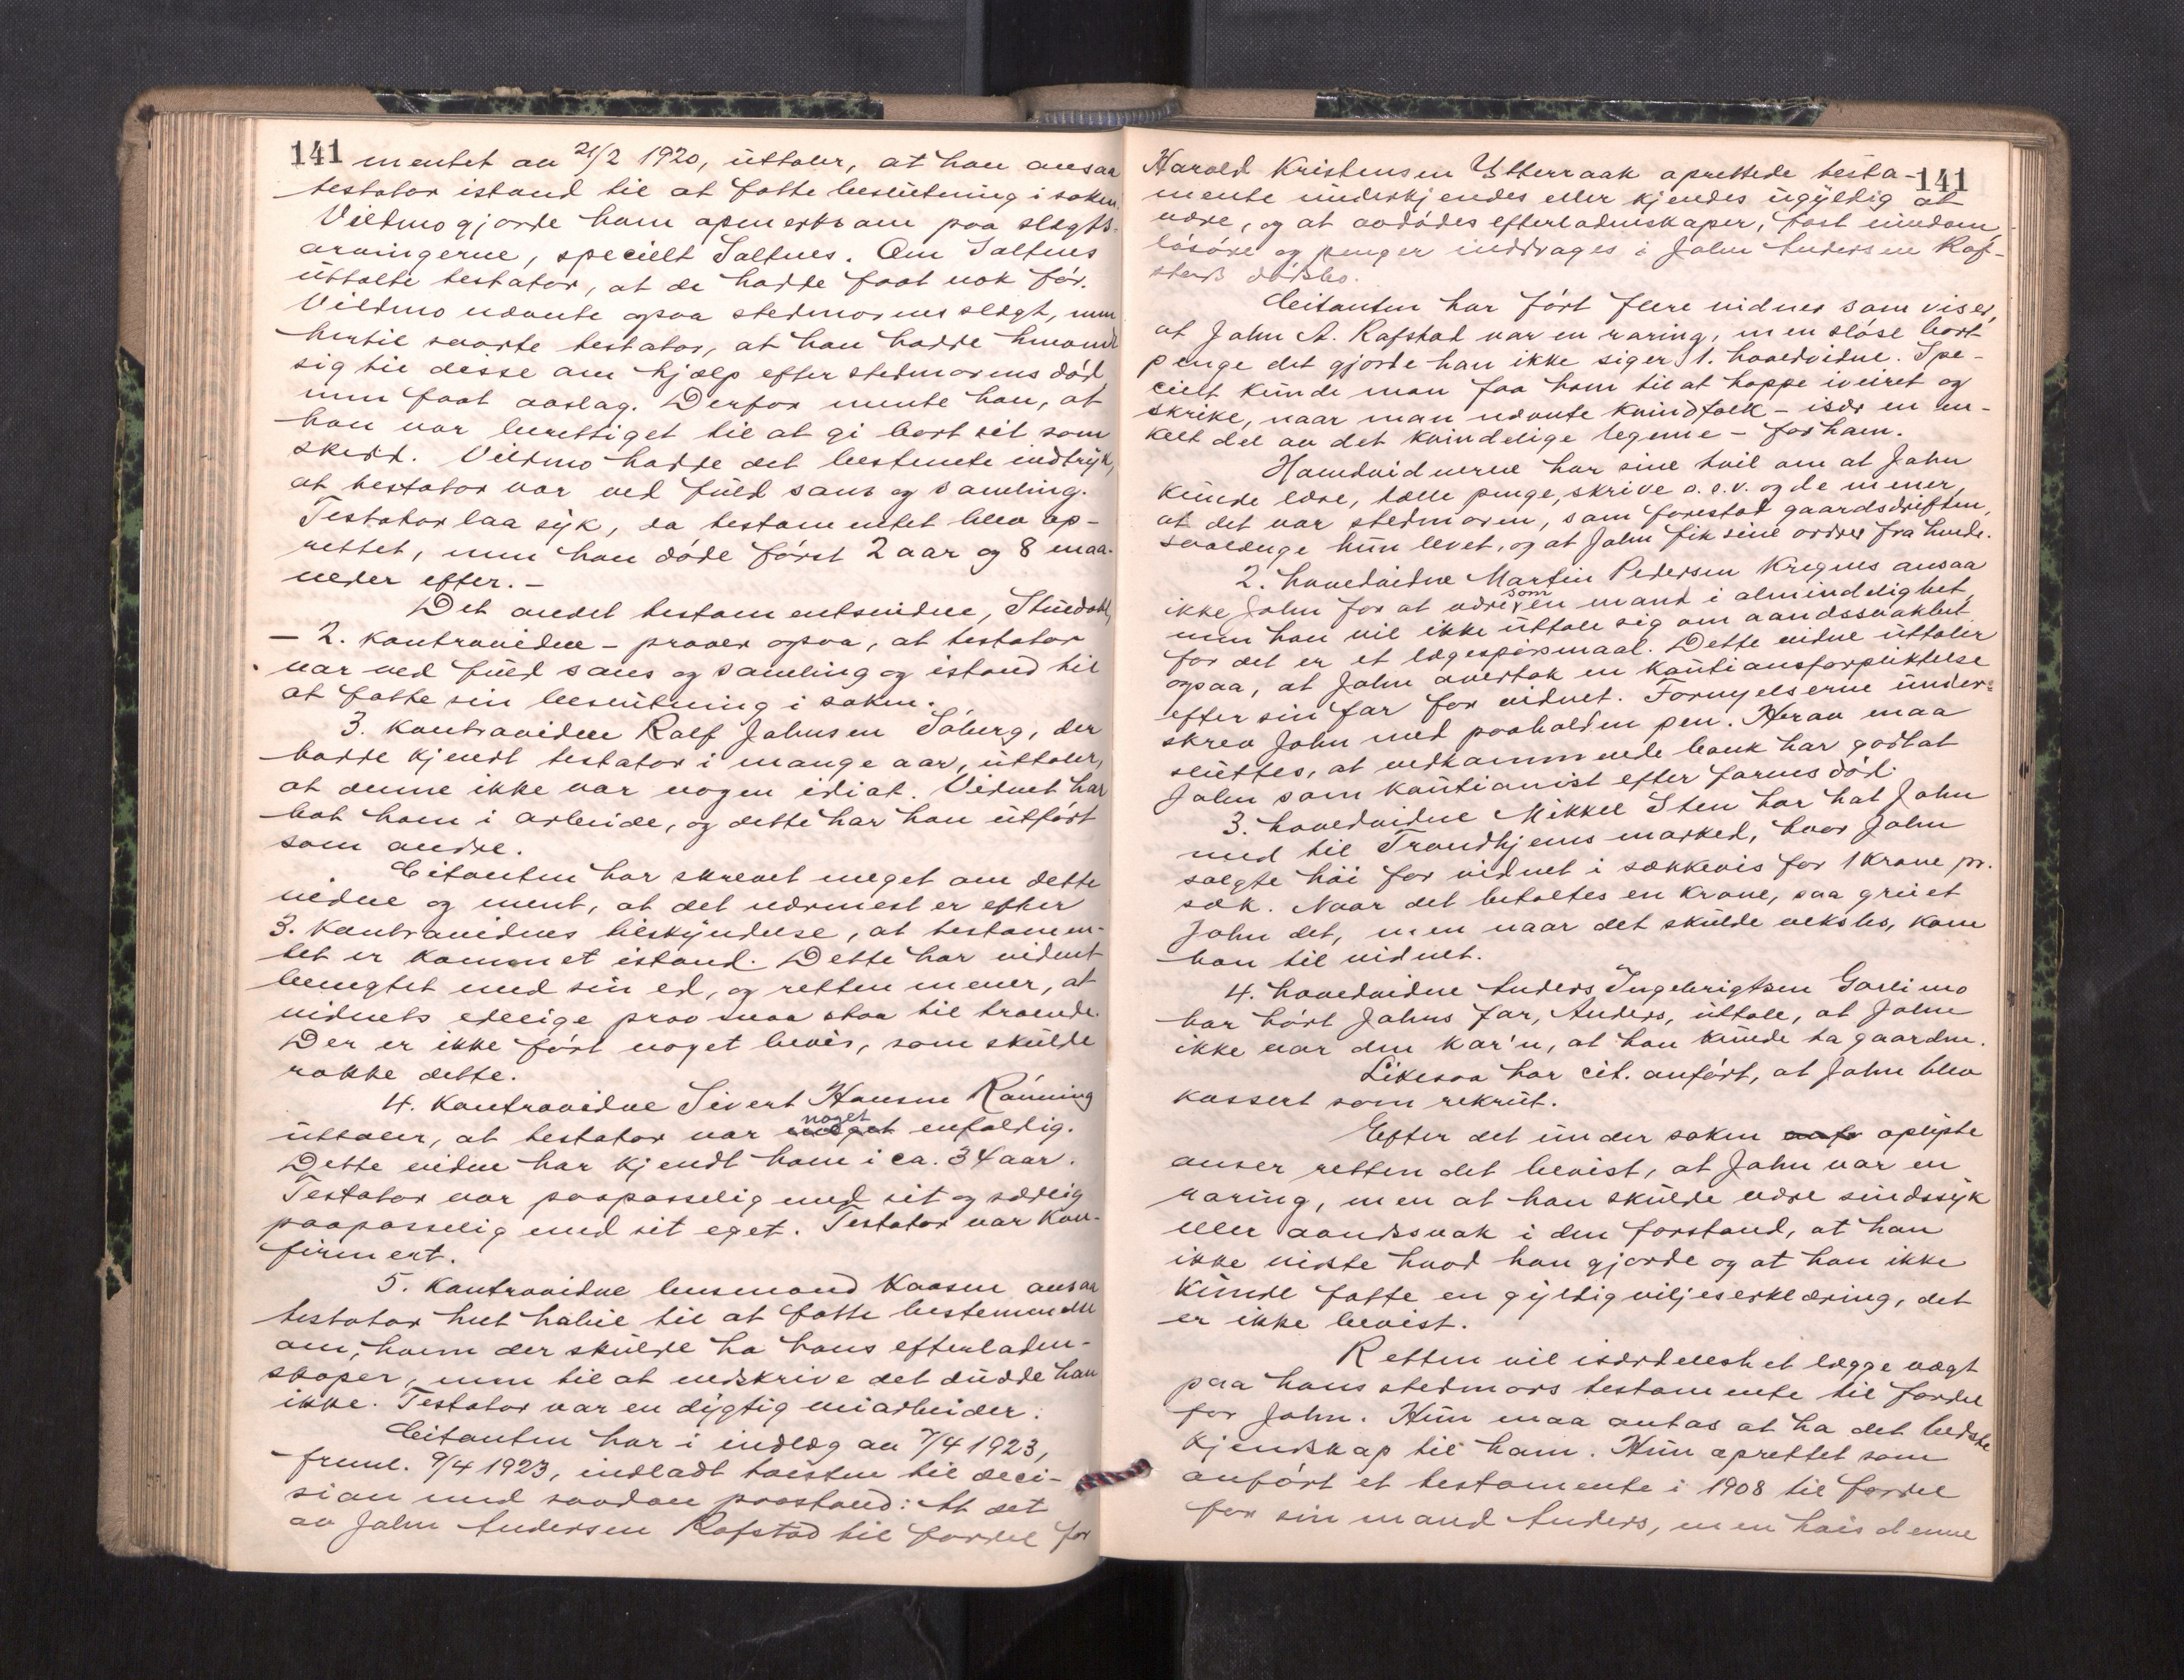 141
mentet av 21/2 1920, uttaler, at han ansaa
testator istand til at fatte beslutning i saken.
Vildmo gjorde ham opmerksom paa slegts-
arvingerne, specielt Saltnes. Om Saltnes
uttalte testator, at de hadde faat nok før.
Vildmo nævnte ogsaa stedmorens slegt, men
hertil svarte testator, at han hadde henvendt
sig til disse om hjælp efter stedmorens død,
men faat avslag. Derfor mente han, at
han var berettiget til at gi bort sit som
skedd. Vildmo hadde det bestemte indtryk,
at testator var ved fuld sans og samling.
Testator laa syk, da testamentet blev op-
rettet, men han døde først 2 aar og 8 maa-
neder efter.-
Det andet testamentsvidne, Stuedahl,
- 2. kontravidne - prover ogsaa, at testator
var ved fuld sans og samling og istand til
at fatte sin beslutning i saken.
3. kontravidne Ralf Johnsen Søberg, der
hadde kjendt testator i mange aar, uttaler,
at denne ikke var nogen idiot. Vidnet har
hat ham i arbeide, og dette har han utført
som andre.
Citanten har skrevet meget om dette
vidne og ment, at det nærmest er efter
3. kontravidnes tilskyndelse, at testamen-
tet er kommet istand. Dette har vidnet
benegtet med sin ed, og retten mener, at
vidnets edelige prov maa staa til troende.
Der er ikke ført noget bevis, som skulde
rokke dette.
4. kontravidne Sivert Hansen Rønning
uttaler, at testator var meget noget enfoldig.
Dette vidne har kjendt ham i ca. 34 aar.
Testator var paapasselig med sit og særlig
paapasselig med sit eget. Testator var kon-
firmert.
5. kontravidne lensmand Kaasen ansaa
testator helt habil til at fatte bestemmelse
om, hvem der skulde ha hans efterladen-
skaper, men til at nedskrive det dudde han
ikke. Testator var en dygtig veiarbeider.
Citanten har i indlæg av 7/4 1923,
freml. 9/4 1923, indladt tvisten til deci-
sion med saadan paastand: At det
av John Andersen Rafstad til fordel for
141
Harald Kristensen Ytterraak oprettede testa-
mente underkjendes eller kjendes ugyldig at
være, og at avdødes efterladenskaper, fast eiendom,
løsøre og penger inddrages i John Andersen Raf-
stads dødsbo.
Citanten har ført flere vidner som viser,
at John A. Rafstad var en raring, men sløse bort
penge det gjorde han ikke siger 1. hovedvidne. Spe-
cielt kunde man faa ham til at hoppe iveiret og
skrike, naar man nævnte kvindfolk - især en en-
kelt del av det kvindelige legeme - for ham.
Hovedvidnerne har sine tvil om at John
kunde læse, tælle penge, skrive o.s.v. og de mener,
at det var stedmoren, som forestod gaardsdriften,
saalænge hun levet, og at John fik sine ordrer fra hende.
2. hovedvidne Martin Pedersen Krignes ansaa
ikke John for at være som en mand i almindelighet,
men han vil ikke uttale sig om aandssvakhet
for det er et lægespørsmaal. Dette vidne uttaler
ogsaa, at John overtok en kautionsforpliktelse
efter sin far for vidnet. Fornyelserne under-
skrev John med paaholden pen. Herav maa
sluttes, at vedkommende bank har godtat
John som kautionist efter farens død.
3. hovedvidne Mikkel Sten har hat John
med til Trondhjems marked, hvor John
solgte høi for vidnet i sækkevis for 1 krone pr.
sæk. Naar det betaltes en krone, saa greiet
John det, men naar det skulde veksles, kom
han til vidnet.
4. hovedvidne Anders Ingebrigtsen Garlimo
har hørt Johns far, Anders, uttale, at John
ikke var den kar'n, at han kunde ta gaarden.
Likesaa har cit. anført, at John blev
kassert som rekrut.
Efter det under saken oplyste
anser retten det bevist, at John var en
raring, men at han skulde være sindssyk
eller aandssvak i den forstand, at han
ikke visste hvad han gjorde og at han ikke
kunde fatte en gyldig viljeserklæring, det
er ikke bevist.
Retten vil isærdeleshet lægge vægt
paa hans stedmors testamente til fordel
for John. Hun maa antas at ha det bedste
kjendskap til ham. Hun oprettet som
anført et testamente i 1908 til fordel
for sin mand Anders, men hvis denne